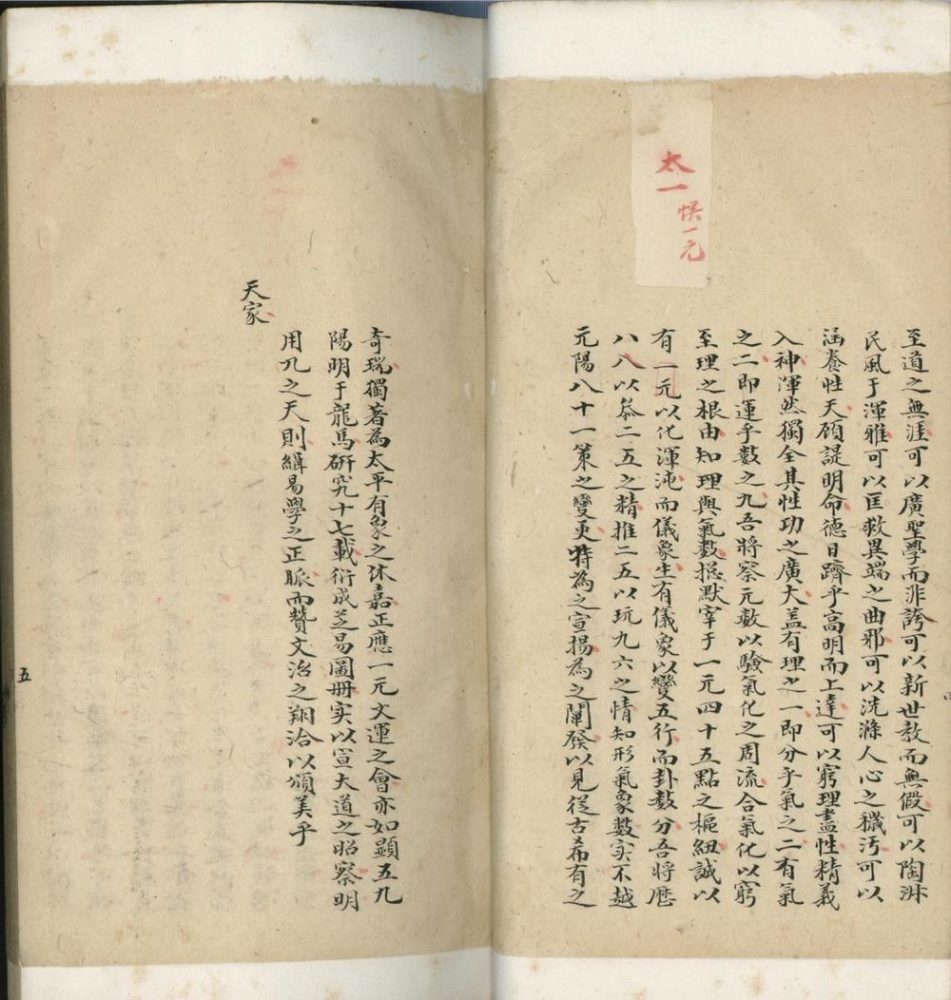 太一
悞一元
至道之無涯可以廣聖學而非誇可以新世教而無假可以陶淋
民風于渾雅可以匡救異端之曲邪可以洗滌人心之穢汚可以
涵養性天顧諟明命德日躋乎高明而上達可以窮理盡性精義
入神渾然獨全其性功之廣大盖有理之一即分乎氣之二有氣
之二即運乎數之九吾將察元數以驗氣化之周流合氣化以窮
至理之根由知理與氣數揔默宰于一元四十五點之樞紐誠以
有一元以化渾沌而儀象生有儀象以變五行而卦數分吾將歷
八八以叅二五之精推二五以玩九六之情知形氣象數实不越
元陽八十一策之變更特為之宣揚為之闡發以見從古希有之
奇瑞獨著為太平有象之休嘉正應一元文運之會亦如顯五九
陽明于龍馬研究十七載衍成芝易圖冊实以宣大道之昭察明
用九之天則緝易學之正脈而贊文治之翔洽以頌美乎
天家
五